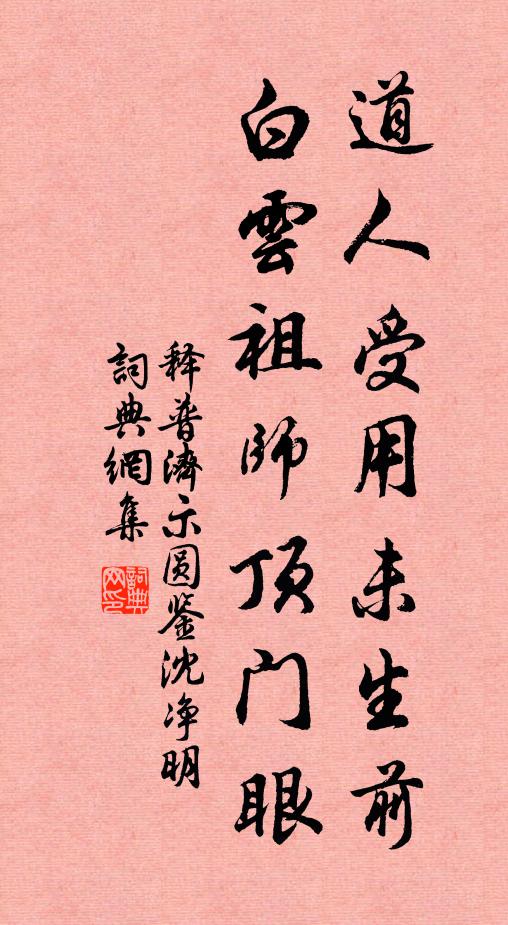 道人受用未生前
白雲祖師顶门眼
释普濟示圆鉴沈净明
詞典網集
詞典网印